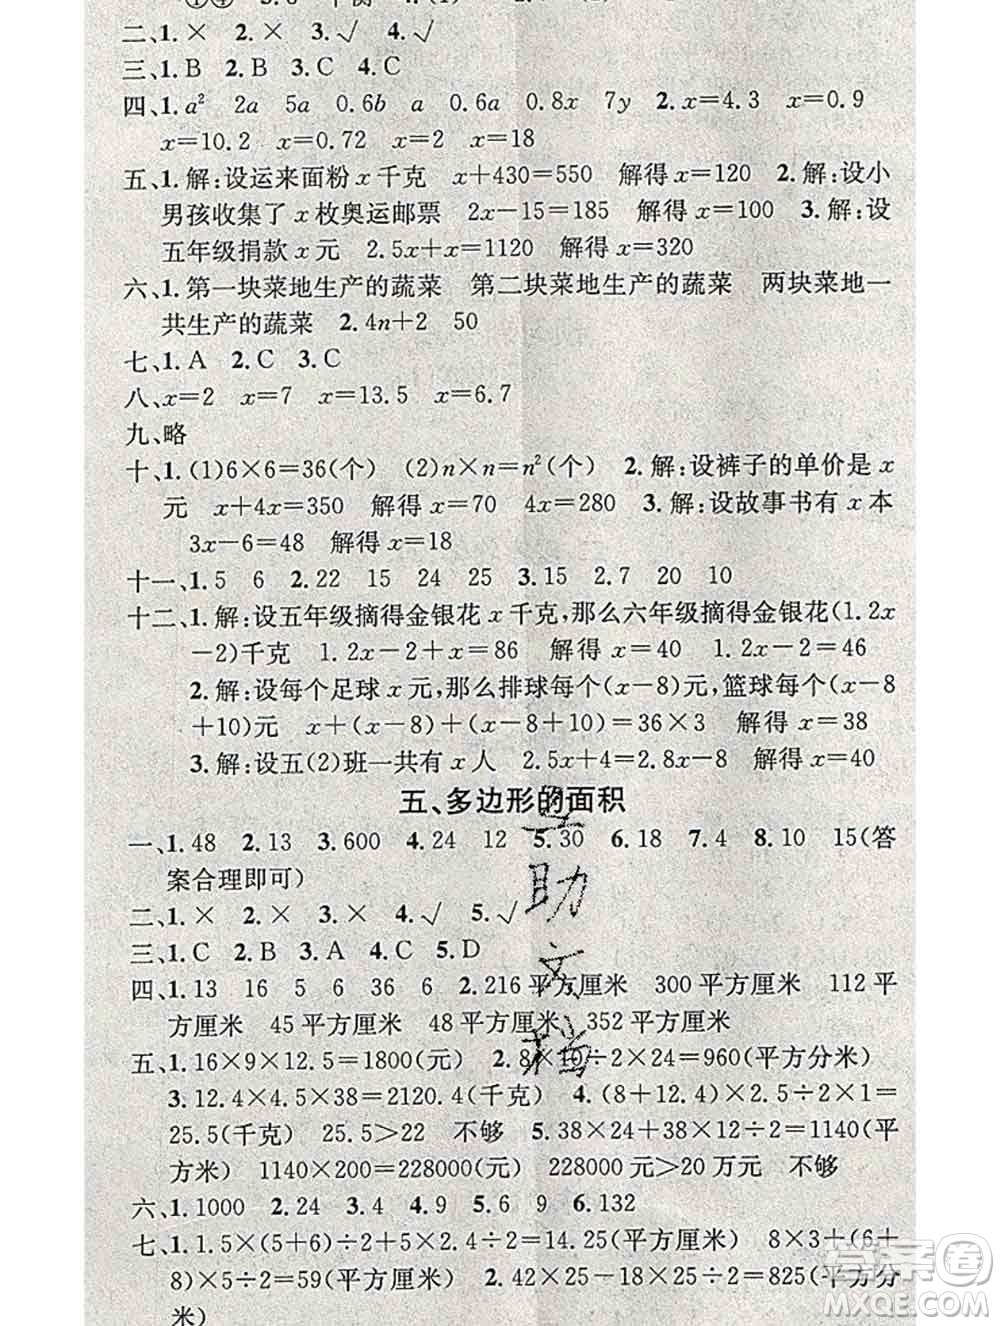 二、1.× 2.× 3.√ 4.√
三、1.B 2.B 3.C 4.C
四、1.a² 2a 5a 0.6b a 0.6a 0.8x 7y 2.x=4.3 x=0.9
x=10.2 x=0.72 x=2 x=18
五、1.解:设运来面粉 x 千克 x+430=550 解得 x=120 2.解:设小
男孩收集了 x 枚奥运邮票 2x-15=185 解得 x=100 3.解:设
五年级捐款 x 元 2.5x+x=1120 解得 x=320
六、1.第一块菜地生产的蔬菜 第二块菜地生产的蔬菜 两块菜地一
共生产的蔬菜 2.4n+2 50
七、1.A 2.C 3.C
八、x=2 x=7 x=13.5 x=6.7
九、略
十、1.(1)6×6=36(个) (2)n×n=n²(个) 2.解:设裤子的单价是 x
元 x+4x=350 解得 x=70 4x=280 3.解:设故事书有 x 本
3x-6=48 解得 x=18
十一、1.5 6 2.22 15 24 25 3.15 2.7 20 10
十二、1.解:设五年级摘得金银花 x 千克,那么六年级摘得金银花(1.2x
-2)千克 1.2x-2+x=86 解得 x=40 1.2x-2=46
2.解:设每个足球 x 元,那么排球每个(x-8)元,篮球每个(x-8
+10)元 x+(x-8)+(x-8+10)=36×3 解得 x=38
3.解:设五(2)班一共有 x 人 2.5x+4=2.8x-8 解得 x=40
五、多边形的面积
一、1.48 2.13 3.300 4.24 12 5.30 6.18 7.4 8.10 15(答
案合理即可)
二、1.× 2.× 3.× 4.√ 5.√
三、1.C 2.B 3.A 4.C 5.D
四、1.13 16 5 6 36 6 2.216 平方厘米 300 平方厘米 112 平
方厘米 45 平方厘米 48 平方厘米 352 平方厘米
五、1.16×9×12.5=1800(元) 2.8×10÷2×24=960(平方分米)
3.12.4×4.5×38=2120.4(千克) 4.(8+12.4)×2.5÷2×1=
25.5(千克) 25.5>22 不够 5.38×24+38×12÷2=1140(平
方米) 1140×200=228000(元) 228000元>20 万元 不够
六、1.1000 2.24 3.4 4.9 5.6 9 6.132
七、1.1.5×(5+6)÷2+5×2.4÷2=14.25(平方米) 8×3+(6+
8)×(8-3)÷2=59(平方厘米) 2.42×25-18×25÷2=825(平方分
米)
助
文
档
答案圈
MXQE.COM